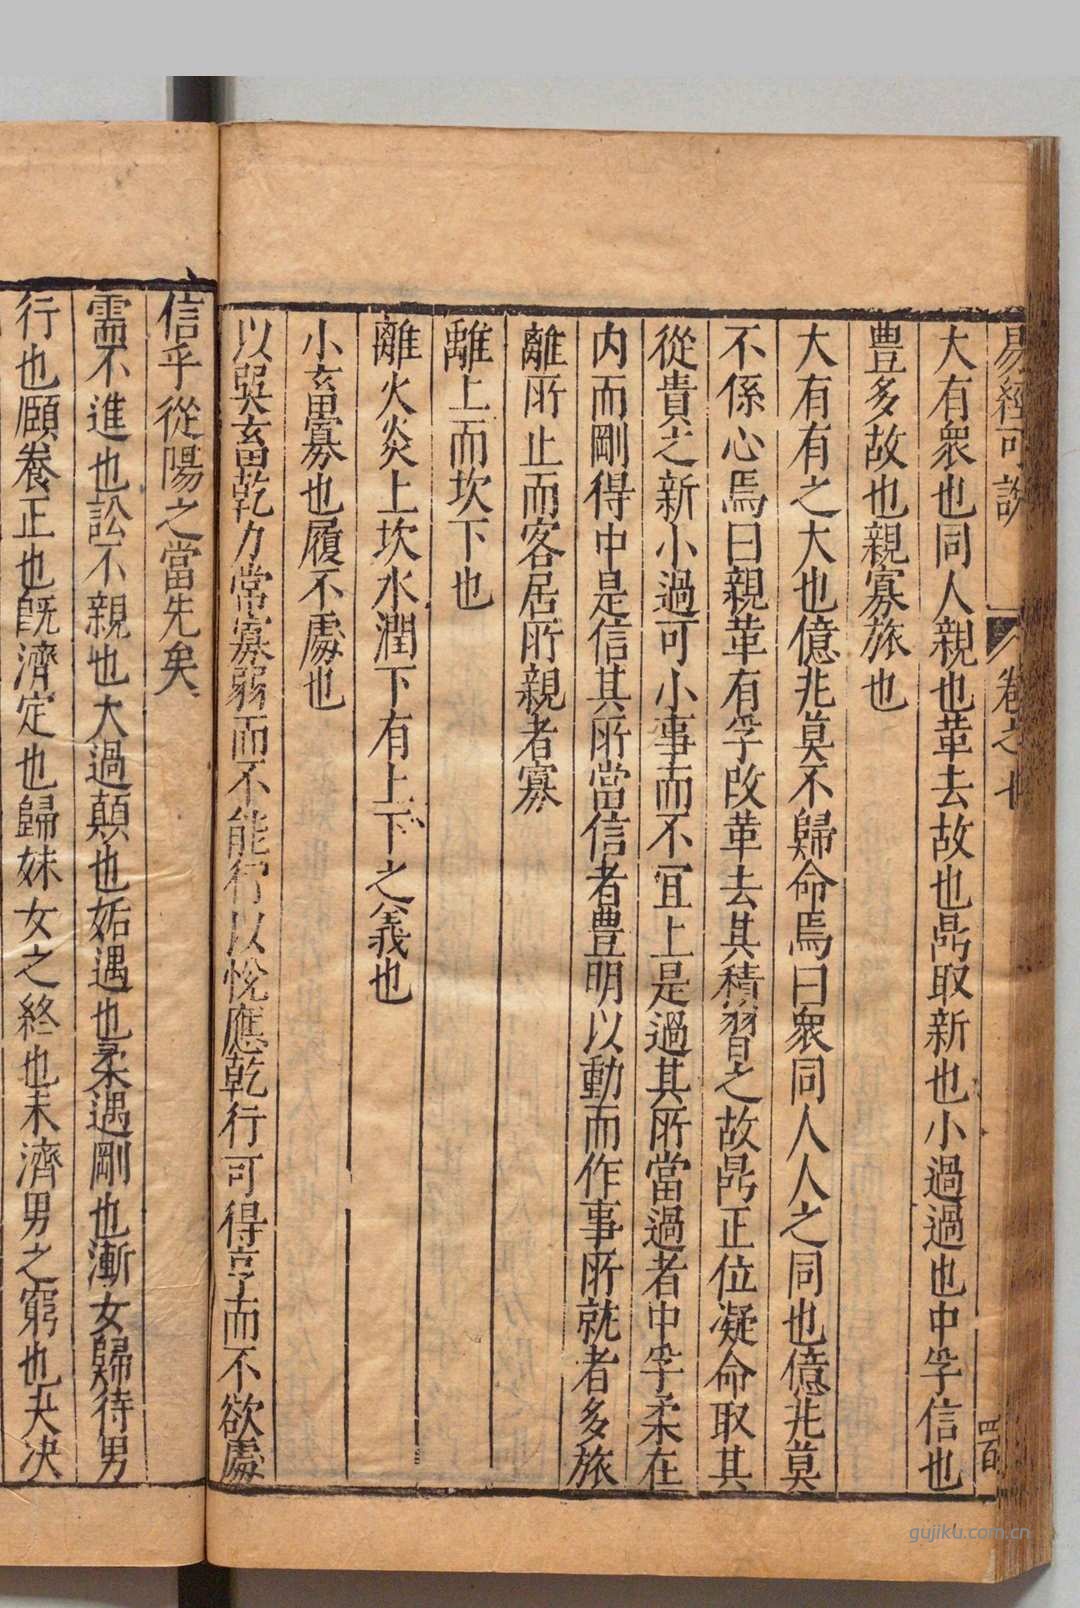 易經可說 卷之七
大有衆也同人親也革去故也鼎取新也小過過也中孚信也
豊多故也親寡旅也
大有有之大也億兆莫不歸命焉曰衆同人人之同也億兆莫
不係心焉曰親革有孚改革去其積習之故鼎正位凝命取其
從貴之新小過可小事而不宜上是過其所當過者中孚柔在
内而剛得中是信其所當信者豊明以動而作事所就者多旅
離所止而客居所親者寡
離上而坎下也
離火炎上坎水潤下有上下之義也
小畜寡也履不處也
以巽畜乾力常寡弱而不能行以悅應乾行可得亨而不欲處
信乎從陽之當先矣
需不進也訟不親也大過顛也姤遇也柔遇剛也漸女歸待男
行也頤養正也旣濟定也歸妹女之終也未濟男之窮也夬决
四百
gujiku.com.cn